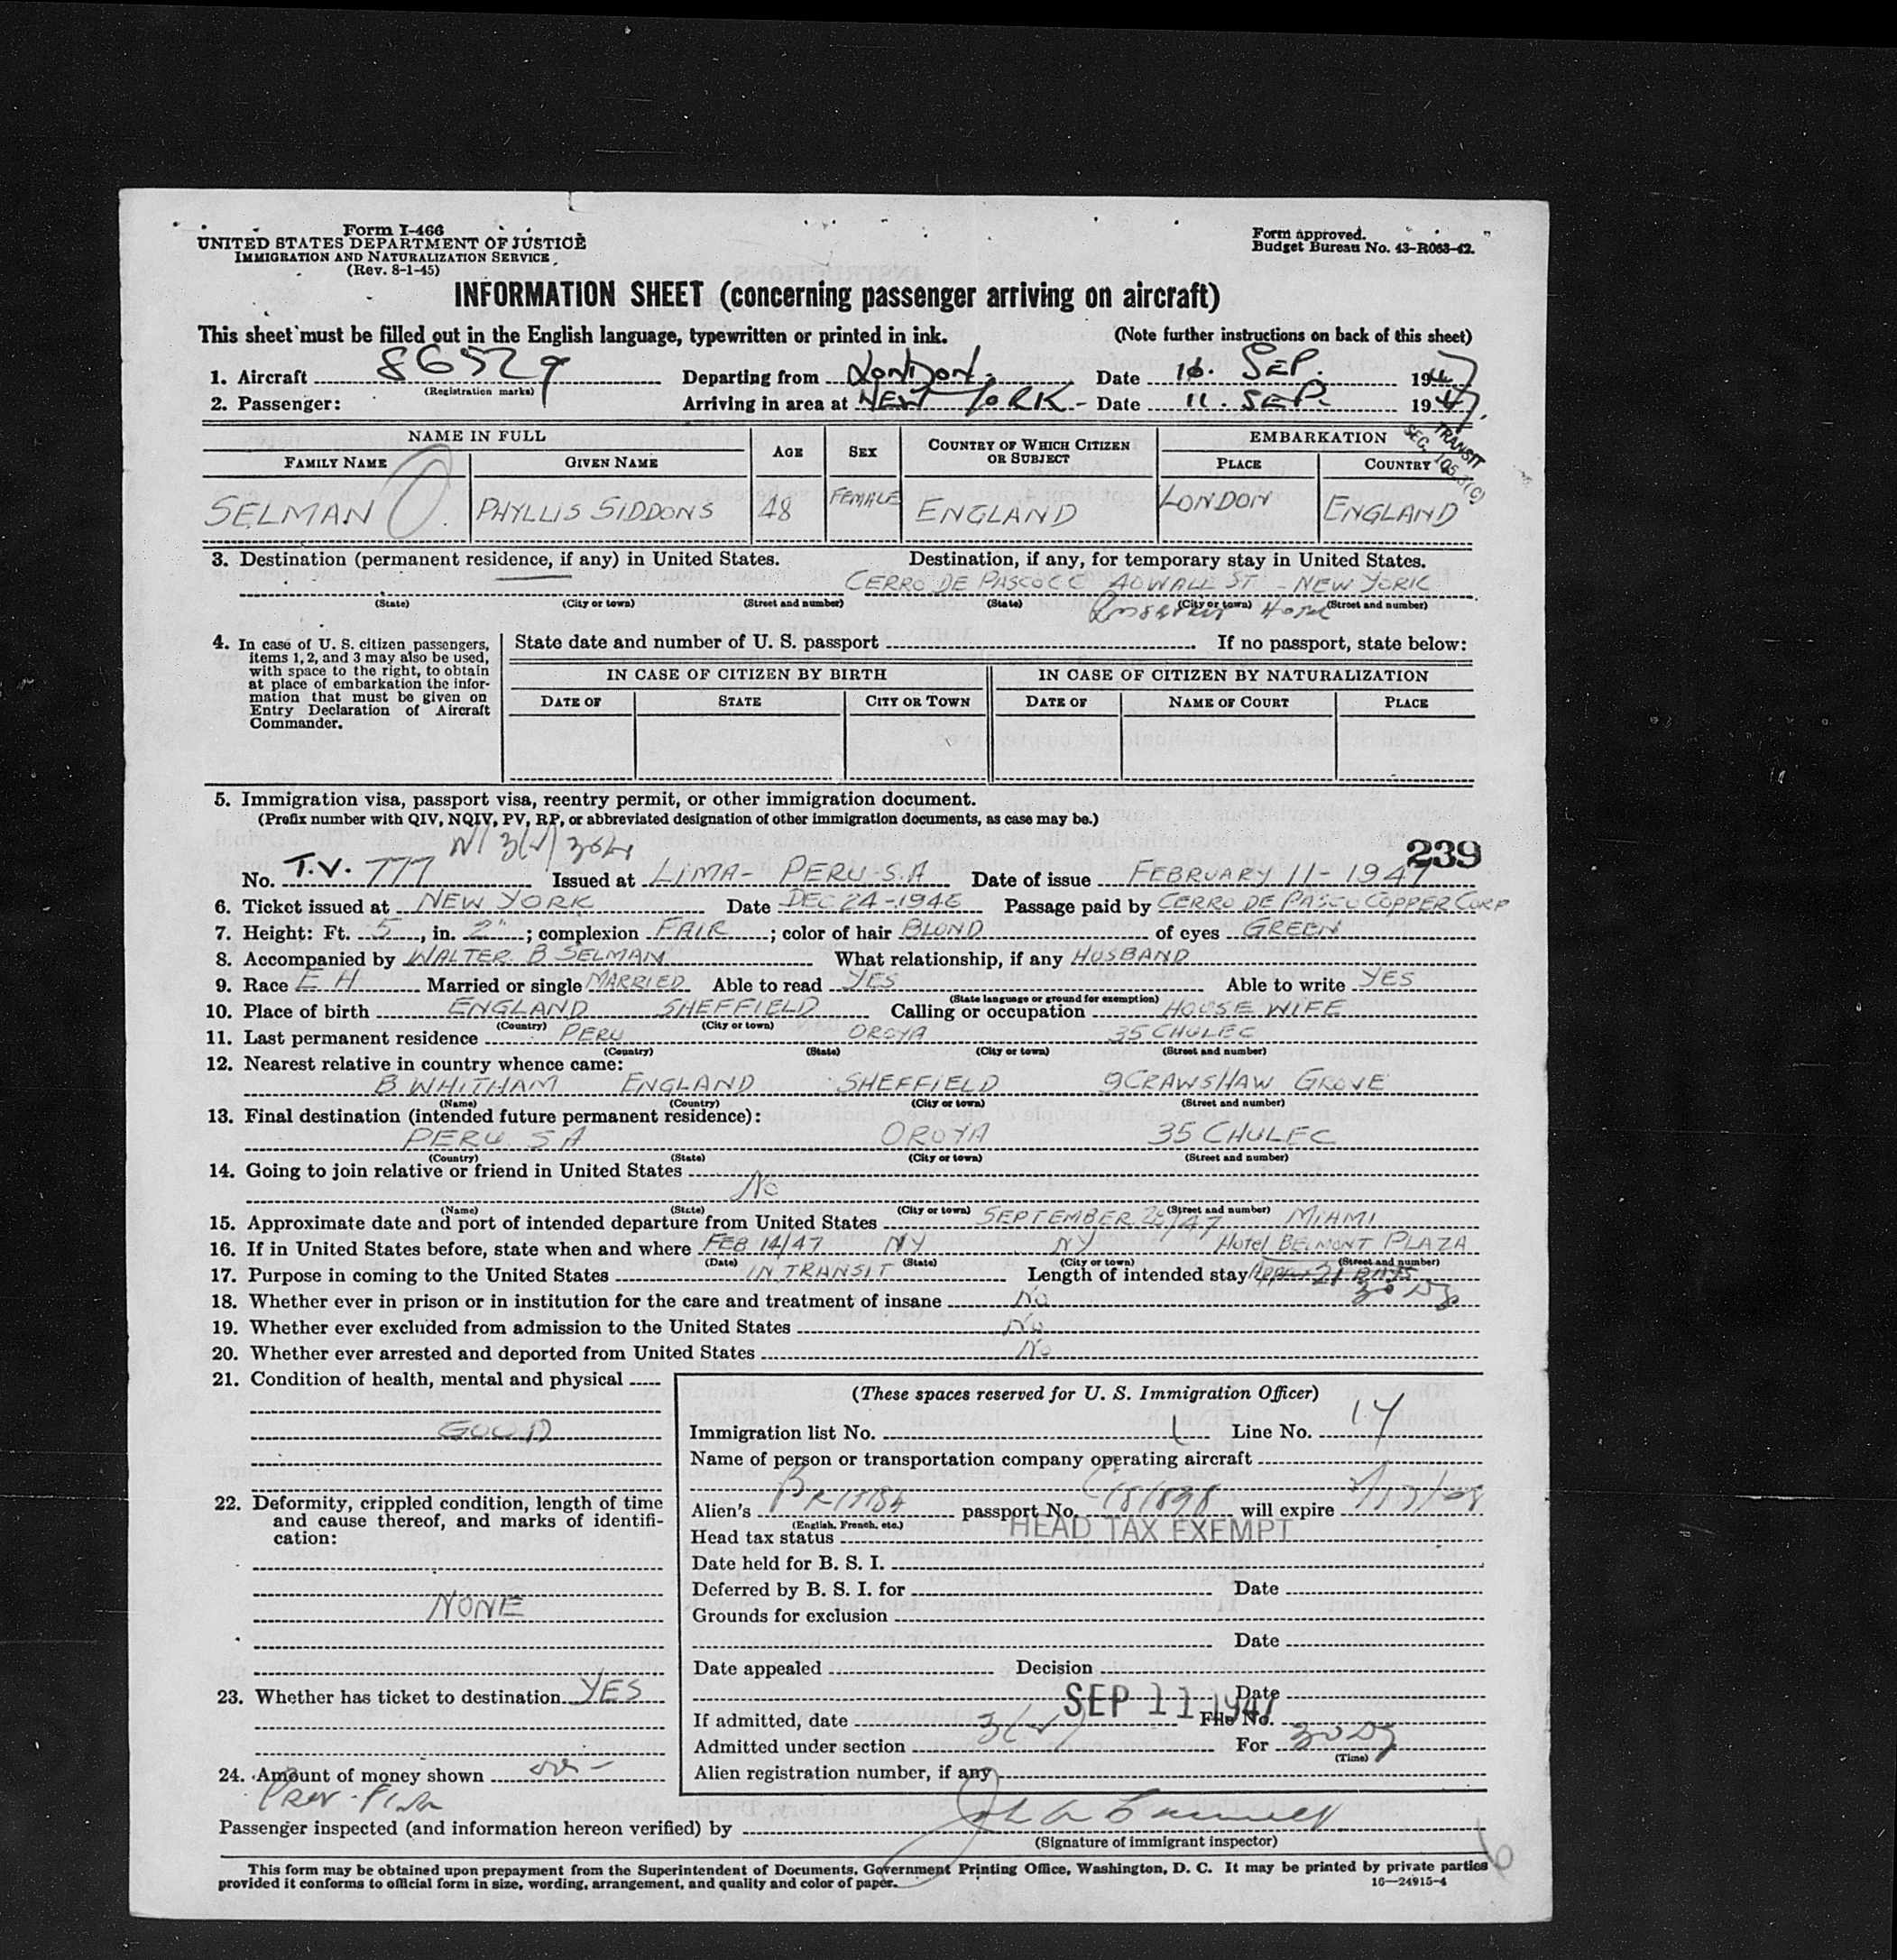 Form I-466
UNITED STATES DEPARTMENT OF JUSTICE
IMMIGRATION AND NATURALIZATION SERVICE
(Rev. 8-1-45)
Form approved.
Budget Bureau No. 43-R063-42.
INFORMATION SHEET (concerning passenger arriving on aircraft)
This sheet must be filled out in the English language, typewritten or printed in ink. (Note further instructions on back of this sheet)
1. Aircraft 86529 Departing from LONDON Date 10. SEP. 1947
(Registration marks)
2. Passenger: Arriving in area at NEW YORK - Date 11. SEP. 1947.
TRANSIT
SEC. 105.3(C)
NAME IN FULL AGE SEX COUNTRY OF WHICH CITIZEN OR SUBJECT EMBARKATION
FAMILY NAME GIVEN NAME PLACE COUNTRY
SELMAN PHYLLIS SIDDONS 48 FEMALE ENGLAND LONDON ENGLAND
3. Destination (permanent residence, if any) in United States. Destination, if any, for temporary stay in United States.
CERRO DE PASCO C C 40 WALL ST - NEW YORK
(State) (City or town) (Street and number) (State) (City or town) (Street and number)
Hotel
4. In case of U. S. citizen passengers, items 1, 2, and 3 may also be used, with space to the right, to obtain at place of embarkation the information that must be given on Entry Declaration of Aircraft Commander.
State date and number of U. S. passport If no passport, state below:
IN CASE OF CITIZEN BY BIRTH IN CASE OF CITIZEN BY NATURALIZATION
DATE OF STATE CITY OR TOWN DATE OF NAME OF COURT PLACE
5. Immigration visa, passport visa, reentry permit, or other immigration document.
(Prefix number with QIV, NQIV, PV, RP, or abbreviated designation of other immigration documents, as case may be.)
239
No. T.V. 777 Issued at LIMA - PERU S.A Date of issue FEBRUARY 11 - 1947
6. Ticket issued at NEW YORK Date DEC 24-1946 Passage paid by CERRO DE PASCO COPPER CORP
7. Height: Ft. 5, in. 2"; complexion FAIR; color of hair BLOND of eyes GREEN
8. Accompanied by WALTER B SELMAN What relationship, if any HUSBAND
9. Race E H Married or single MARRIED Able to read YES Able to write YES
(State language or ground for exemption)
10. Place of birth ENGLAND SHEFFIELD Calling or occupation HOUSE WIFE
(Country) (City or town)
11. Last permanent residence PERU OROYA 35 CHULEC
(Country) (State) (City or town) (Street and number)
12. Nearest relative in country whence came:
B WHITHAM ENGLAND SHEFFIELD 9 CRAWSHAW GROVE
(Name) (Country) (City or town) (Street and number)
13. Final destination (intended future permanent residence):
PERU S A OROYA 35 CHULEC
(Country) (State) (City or town) (Street and number)
14. Going to join relative or friend in United States
No
(Name) (State) (City or town) (Street and number)
15. Approximate date and port of intended departure from United States SEPTEMBER /47 MIAMI
16. If in United States before, state when and where FEB 14/47 NY NY Hotel BELMONT PLAZA
(Date) (State) (City or town) (Street and number)
17. Purpose in coming to the United States IN TRANSIT Length of intended stay Approx 21 DAYS
30 Ds
18. Whether ever in prison or in institution for the care and treatment of insane No
19. Whether ever excluded from admission to the United States No
20. Whether ever arrested and deported from United States No
21. Condition of health, mental and physical
GOOD
22. Deformity, crippled condition, length of time and cause thereof, and marks of identification:
NONE
23. Whether has ticket to destination YES
24. Amount of money shown
(These spaces reserved for U. S. Immigration Officer)
Immigration list No. 1 Line No. 14
Name of person or transportation company operating aircraft
Alien's BRITISH passport No. C181898 will expire
(English, French, etc.)
Head tax status HEAD TAX EXEMPT
Date held for B. S. I.
Deferred by B. S. I. for Date
Grounds for exclusion
Date
Date appealed Decision
Date
If admitted, date SEP 11 1947 File No.
Admitted under section For 30 Ds
(Time)
Alien registration number, if any
Passenger inspected (and information hereon verified) by
(Signature of immigrant inspector)
This form may be obtained upon prepayment from the Superintendent of Documents, Government Printing Office, Washington, D. C. It may be printed by private parties
provided it conforms to official form in size, wording, arrangement, and quality and color of paper. 16—24915-4